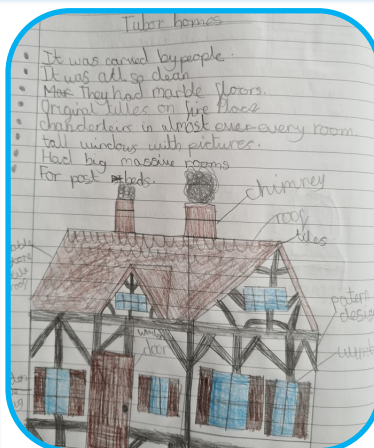 Tudor homes
It was carved by people.
It was all so clean
They had marble floors.
Original tiles on fire place
chanderleirs in almost every room.
tall windows with pictures.
Had big massive rooms
For post beds.
chimney
roof
tiles
patern
design
door